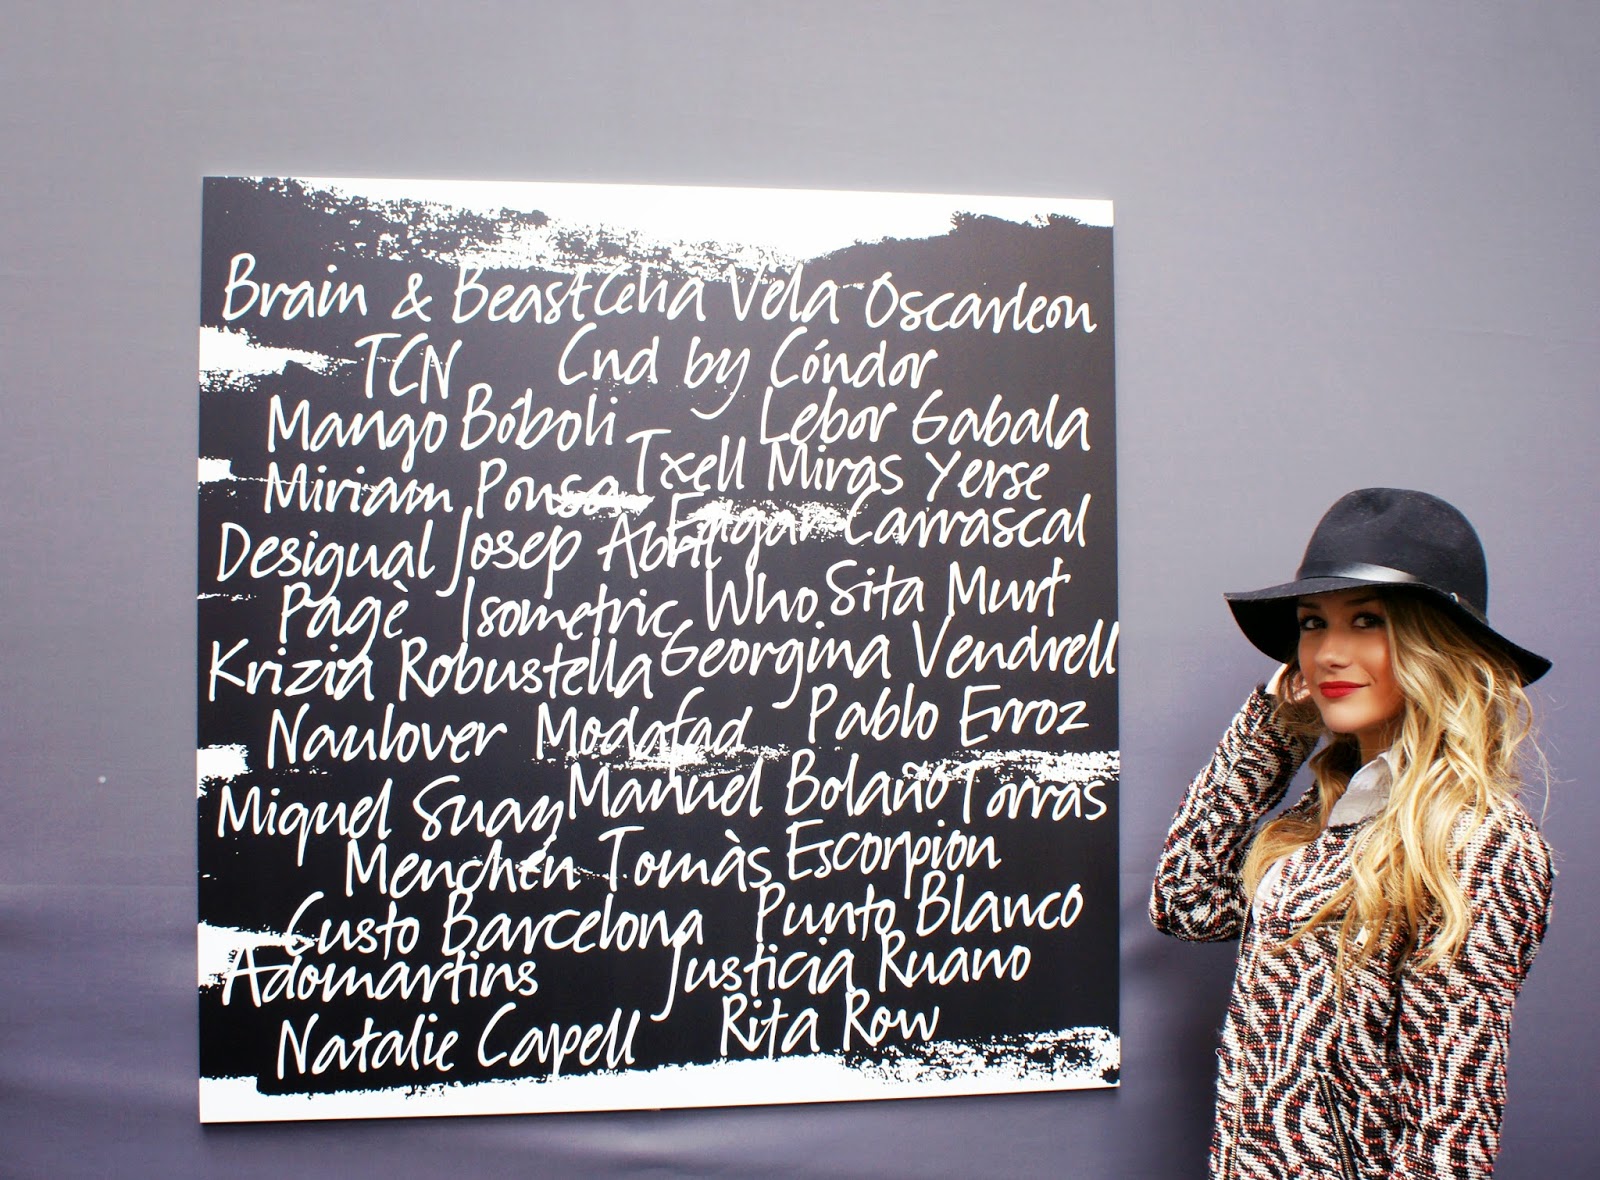 Brain & Beast Celia Vela Oscarleon
TCN Cnd by Cóndor
Mango Bóboli Lebor Gabala
Miriam Ponsa Txell Miras Yerse
Desigual Josep Abril Edgar Carrascal
Pagè Isometric Who Sita Murt
Krizia Robustella Georgina Vendrell
Naulover Modafad Pablo Erroz
Miquel Suay Manuel Bolaño Torras
Menchén Tomàs Escorpion
Custo Barcelona Punto Blanco
Adomartins Justicia Ruano
Natalie Capell Rita Row